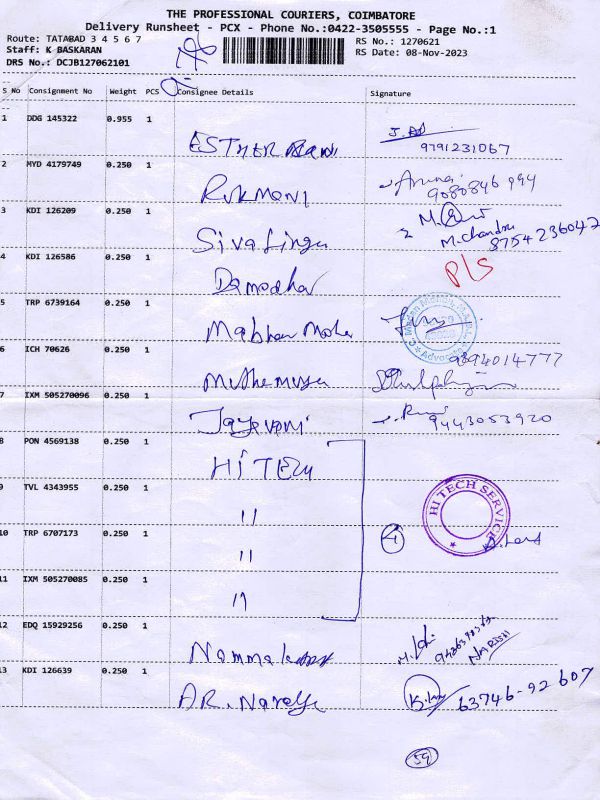 THE PROFESSIONAL COURIERS, COIMBATORE
Delivery Runsheet - PCX - Phone No.:0422-3505555 - Page No.:1
Route: TATABAD 3 4 5 6 7
Staff: K BASKARAN
DRS No.: DCJB127062101
RS No.: 1270621
RS Date: 08-Nov-2023
S No Consignment No Weight PCS Consignee Details Signature
1 DDG 145322 0.955 1 ESTHER Rani 9791231067
2 MYD 4179749 0.250 1 Rukmani 9080846994
3 KDI 126209 0.250 1 Sivalinga M. Chandru 8754236042
4 KDI 126586 0.250 1 Damodhar P/S
5 TRP 6739164 0.250 1 Advocate
6 ICH 70626 0.250 1 9894014777
7 IXM 505270096 0.250 1 Jayavani 9443053920
8 PON 4569138 0.250 1 HITECH
9 TVL 4343955 0.250 1 " HI TECH SERVICE
10 TRP 6707173 0.250 1 " 4
11 IXM 505270085 0.250 1 "
12 EDQ 15929256 0.250 1 Namma NARISH
13 KDI 126639 0.250 1 A.R. 63746-92607
59